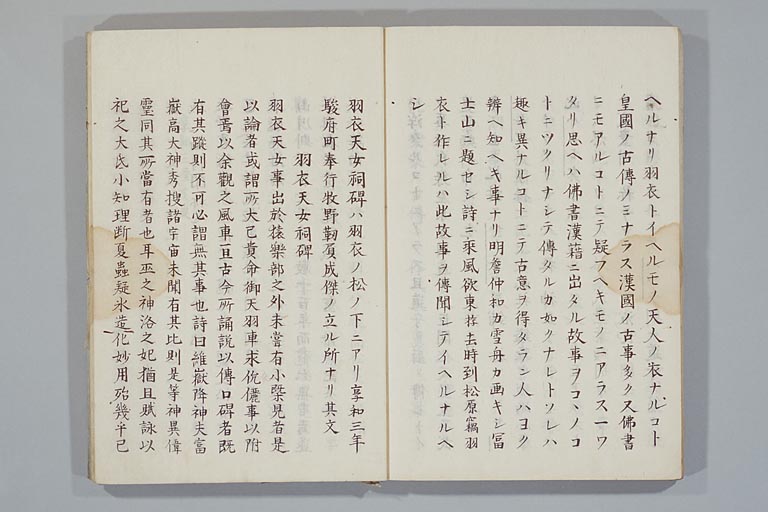 ヘルナリ羽衣トイヘルモノ天人ノ衣ナルコト
皇國ノ古傳ノミナラス漢國ノ古事多ク又佛書
ニモアルコトニテ疑フヘキモノニアラス一ワ
タリ思ヘハ佛書漢籍ニ出タル故事ヲコヽノコ
トニツクリナシテ傳タルカ如クナレトソレハ
趣キ異ナルコトニテ古意ヲ得タラン人ハヨク
辨ヘ知ヘキ事ナリ明詹仲和カ雪舟カ画キシ冨
士山ニ題セシ詩ニ乘風欲東遊去時到松原竊羽
衣ト作レルハ此故事ヲ傳聞シテイヘルナルヘ
シ
羽衣天女祠碑ハ羽衣ノ松ノ下ニアリ享和三年
駿府町奉行牧野靭負成傑ノ立ル所ナリ其文
羽衣天女祠碑
羽衣天女事出於猿樂部之外未嘗有小槩見者是
以論者或謂所大己貴命御天羽車求伉儷事以附
會焉以余觀之風車亘古今所誦説以傳口碑者既
有其蹤則不可必謂無其事也詩曰維嶽降神夫富
嶽高大神秀搜諸宇宙未聞有其比則是等神異偉
靈同其所當有者也耳巫之神洛之妃猶且賦詠以
祀之大氐小知理断夏蟲疑氷造化妙用殆幾乎已